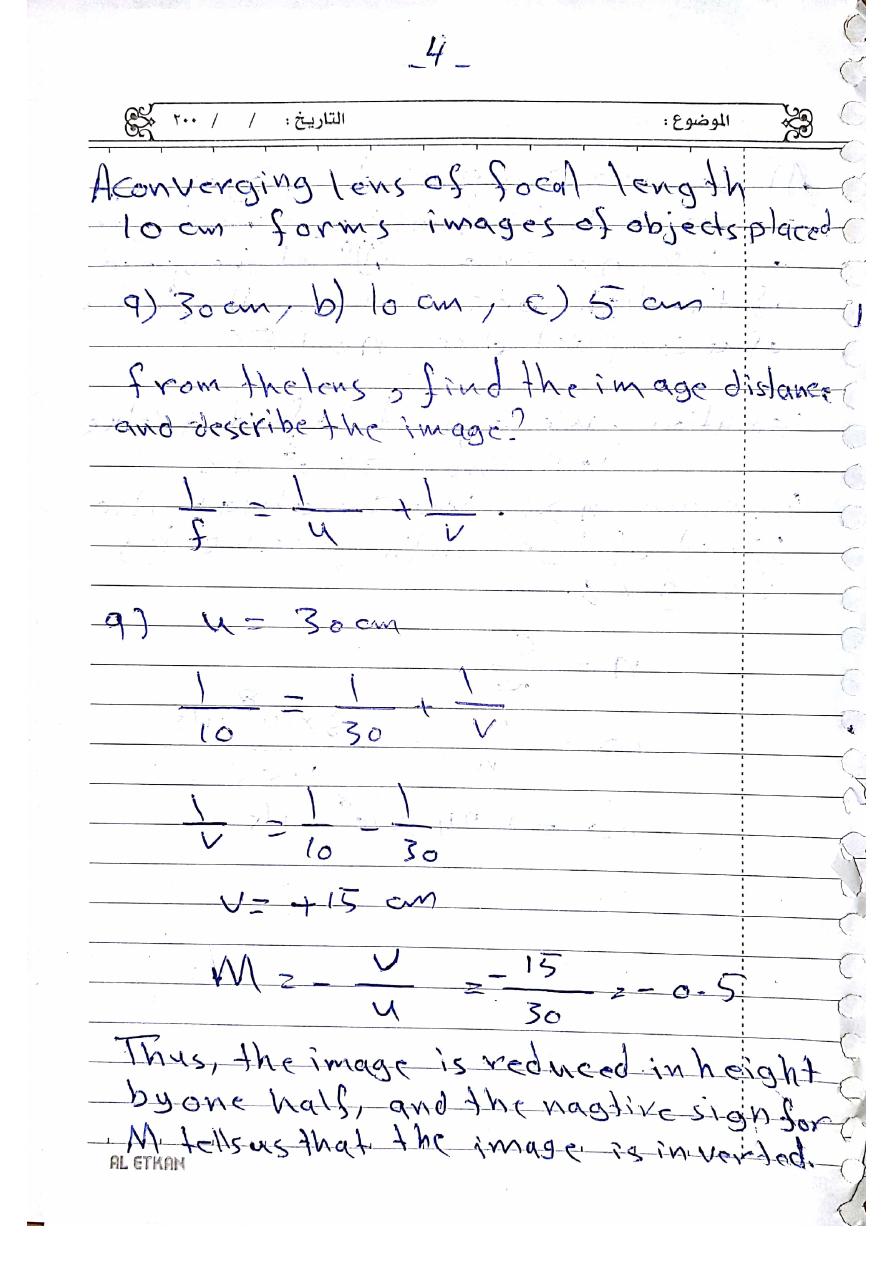 _4_
الموضوع: التاريخ: / / ٢٠٠
A converging lens of focal length
10 cm forms images of objects placed
a) 30 cm, b) 10 cm, c) 5 cm
from the lens, find the image distance
and describe the image?
1/f = 1/u + 1/v .
a) u = 30 cm
1/10 = 1/30 + 1/v
1/v = 1/10 - 1/30
v = +15 cm
M = - v/u = -15/30 = - 0.5
Thus, the image is reduced in height
by one half, and the nagtive sign for
M tells us that the image is inverted.
AL ETKAN